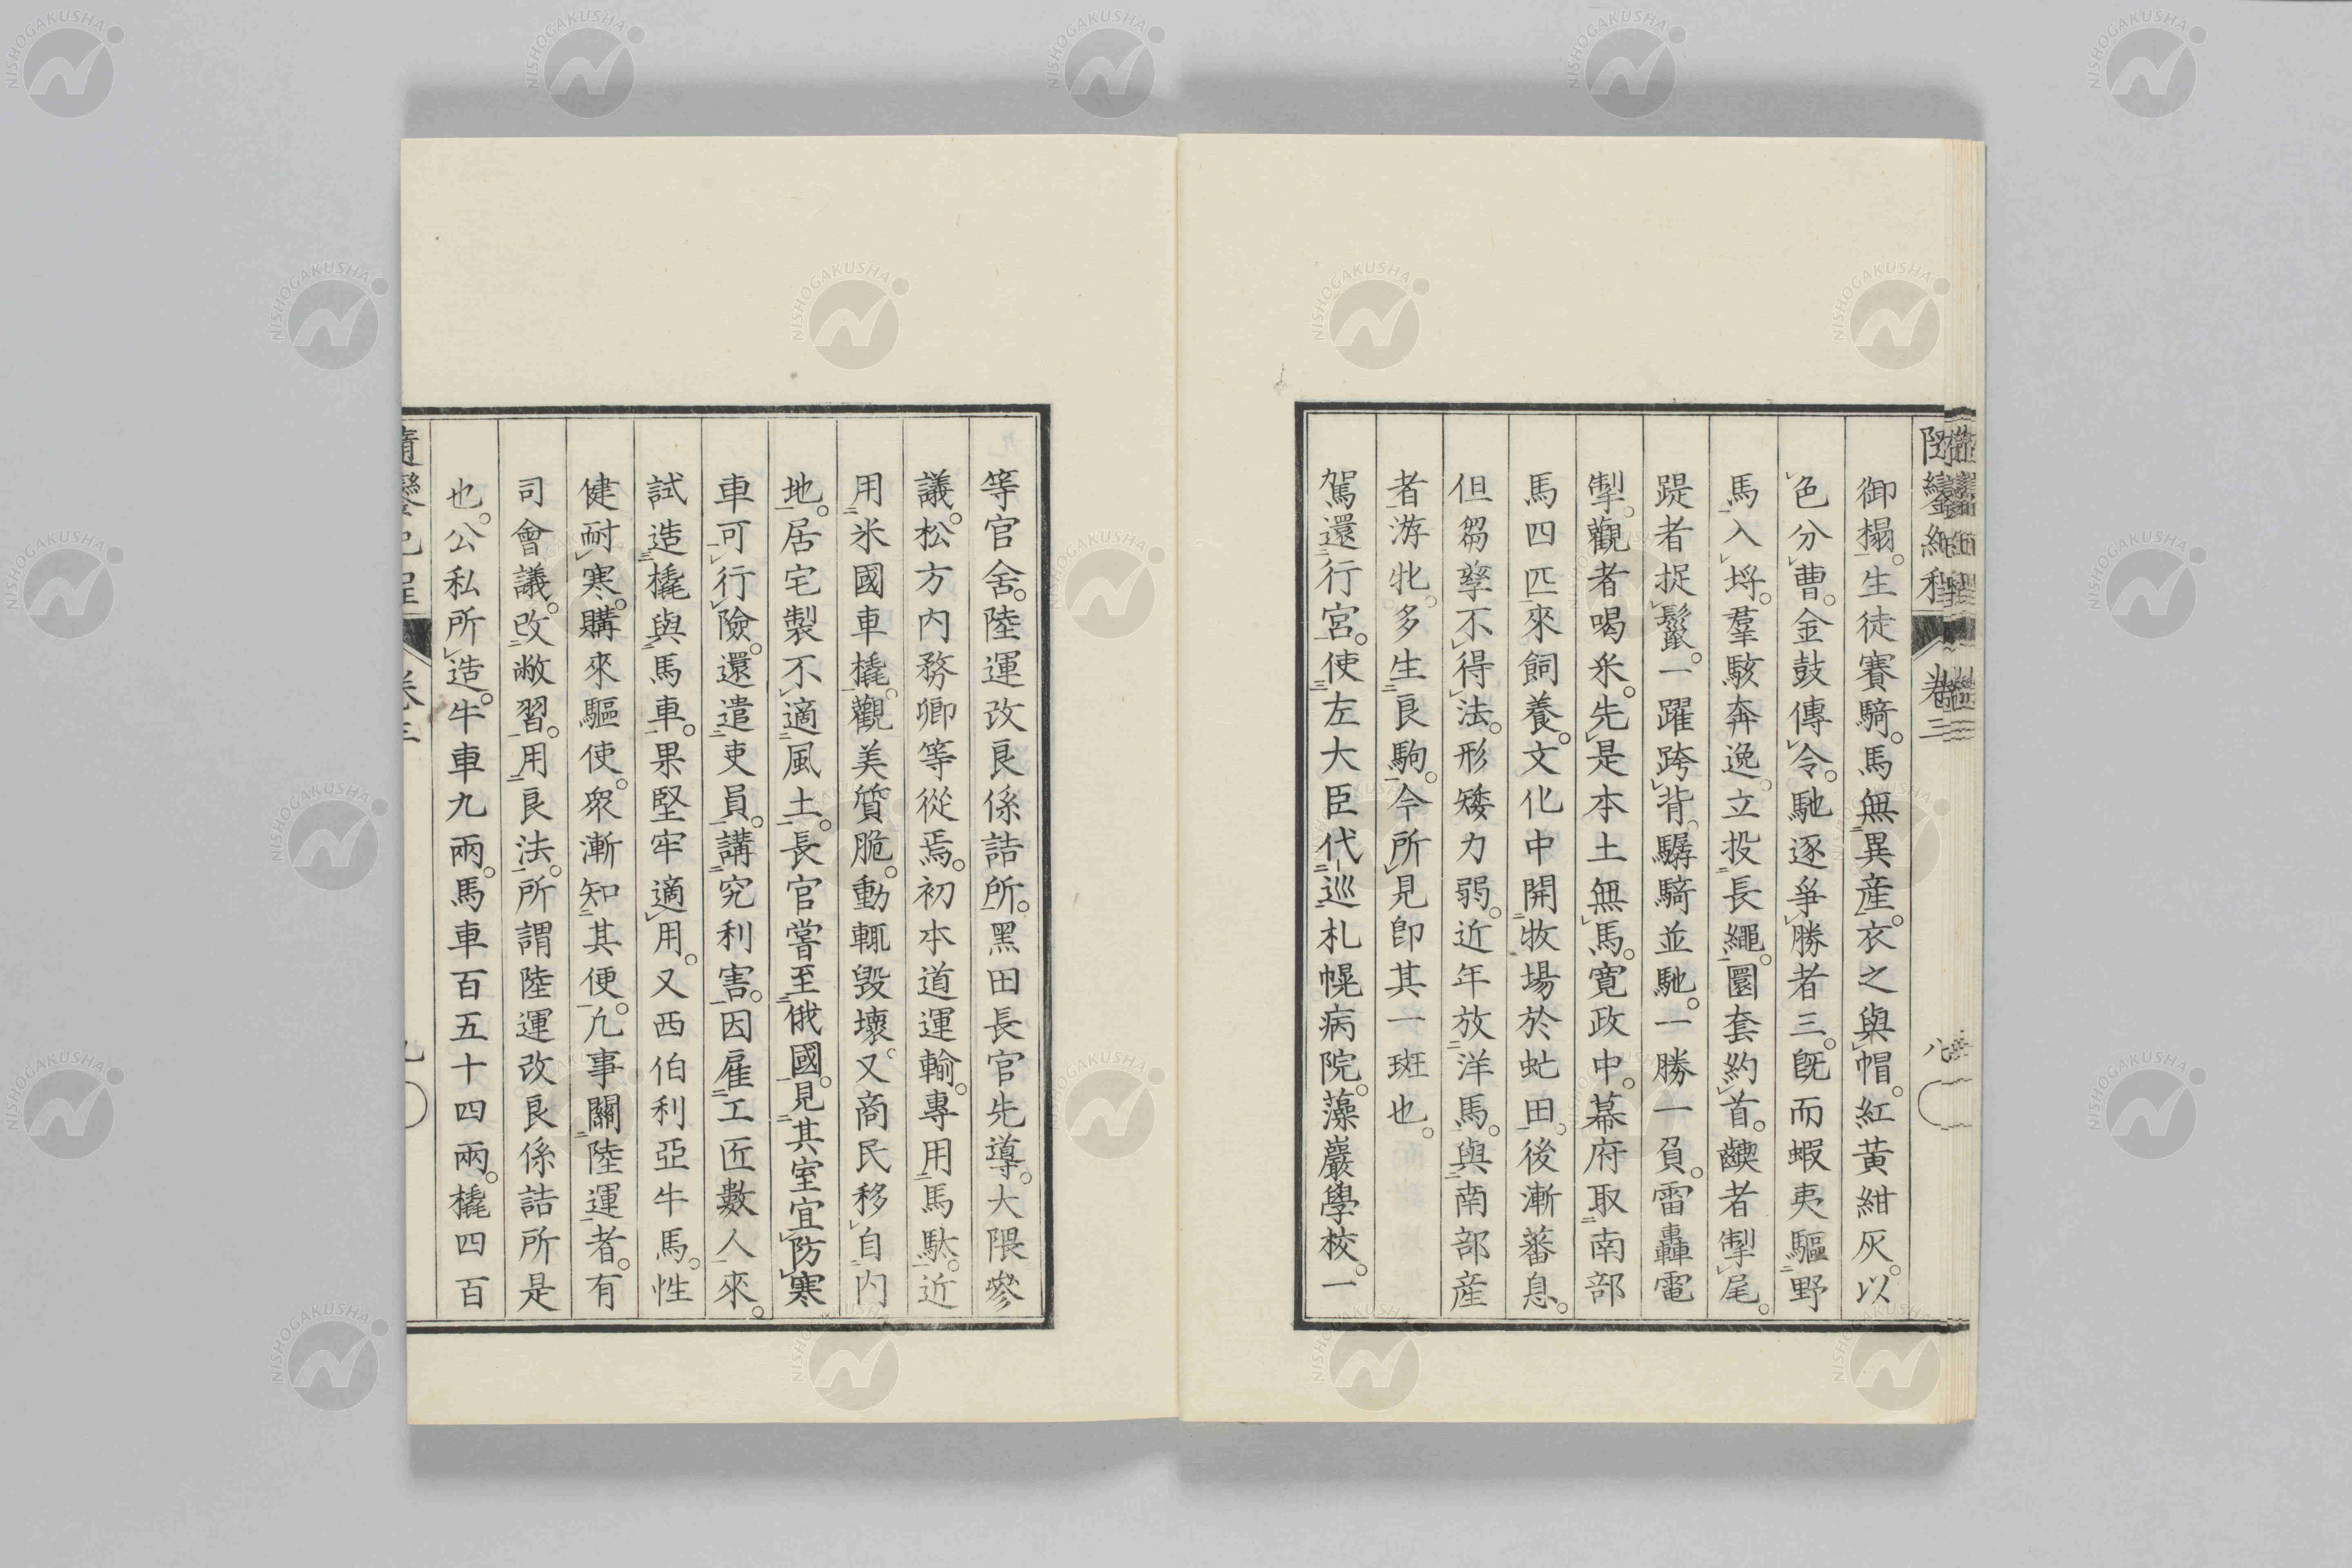 御榻。生徒賽騎。馬無異産。衣之與帽。紅黃紺灰。以
色分曹。金鼓傳令。馳逐爭勝者三。既而蝦夷驅野
馬入埒。羣駭奔逸。立投長繩。圜套約首。齩者掣尾。
踶者捉鬣。一躍跨背。驏騎並馳。一勝一負。雷轟電
掣。觀者喝釆。先是本土無馬。寬政中。幕府取南部
馬四匹來飼養。文化中開牧場於虻田。後漸蕃息。
但芻孳不得法。形矮力弱。近年放洋馬。與南部産
者游牝。多生良駒。今所見卽其一斑也。
駕還行宮。使左大臣代巡札幌病院。藻巖學校。一
等官舍。陸運改良係詰所。黑田長官先導。大隈參
議。松方內務卿等從焉。初本道運輸。專用馬馱。近
用米國車橇。觀美質脆。動輒毀壞。又商民移自內
地。居宅製不適風土。長官嘗至俄國。見其室宜防寒
車可行險。還遣吏員。講究利害。因雇工匠數人來。
試造橇與馬車。果堅牢適用。又西伯利亞牛馬。性
健耐寒。購來驅使。衆漸知其便。凢事關陸運者。有
司會議。改敝習。用良法。所謂陸運改良係詰所是
也。公私所造。牛車九兩。馬車百五十四兩。橇四百
卷三
八
NISHOGAKUSHA